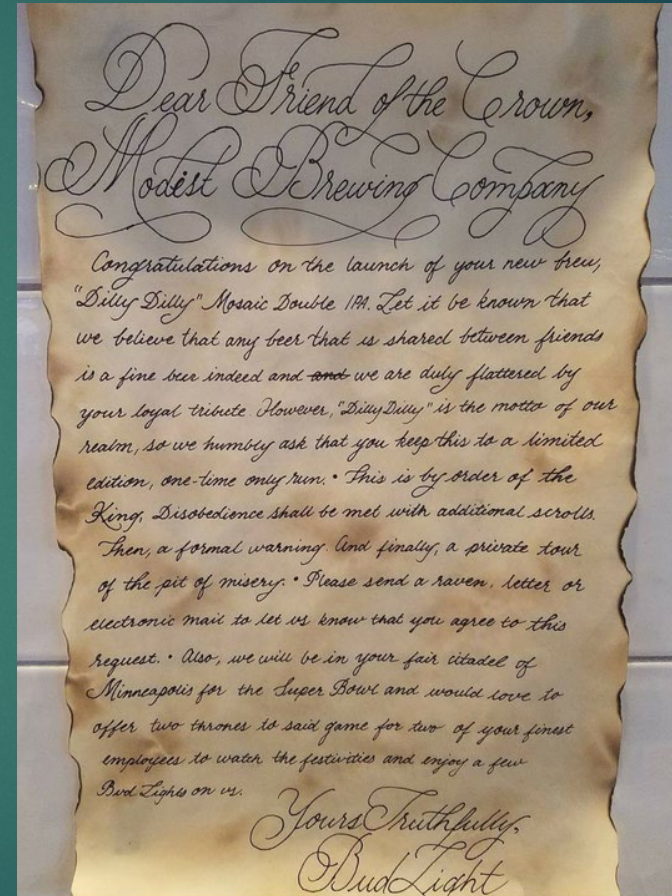 Dear Friend of the Crown,
Modist Brewing Company
Congratulations on the launch of your new brew,
"Dilly Dilly" Mosaic Double IPA. Let it be known that
we believe that any beer that is shared between friends
is a fine beer indeed and and we are duly flattered by
your loyal tribute However, "Dilly Dilly" is the motto of our
realm, so we humbly ask that you keep this to a limited
edition, one-time only run. • This is by order of the
King. Disobedience shall be met with additional scrolls.
Then, a formal warning. And finally, a private tour
of the pit of misery. • Please send a raven, letter or
electronic mail to let us know that you agree to this
request. • Also, we will be in your fair citadel of
Minneapolis for the Super Bowl and would love to
offer two thrones to said game for two of your finest
employees to watch the festivities and enjoy a few
Bud Lights on us.
Yours Truthfully,
Bud Light